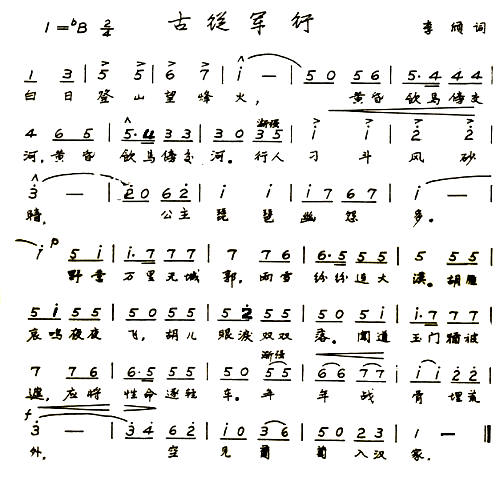 1=♭B 2/4 古从军行 李颀词
1 3 5 5 6 7 i — 5 0 5 6 5·4 4 4
白日登山望烽火，黄昏饮马傍交
4 6 5 5·4 3 3 3 0 3 5 i i 2 2
渐强
河，黄昏饮马傍交河。行人刁斗风砂
3 — 2 0 6 2 i i i 7 6 7
暗，公主琵琶幽怨多。
i p 5 i i·7 7 7 7 7 6 6·5 5 5 5 5 5
野营万里无城郭，雨雪纷纷连大漠。胡雁
5 i 5 5 5 0 5 5 5 2 5 5 5 0 5 i i·7 7 7
哀鸣夜夜飞，胡儿眼泪双双落。闻道玉门犹被
渐强
7 7 6 6·5 5 5 5 0 5 5 6 6 7 7 i i 2 2
遮，应将性命逐轻车。年年战骨埋荒
f 3 — 3 4 6 2 i 0 3 6 5 0 2 3 1 —
外，空见葡萄入汉家。